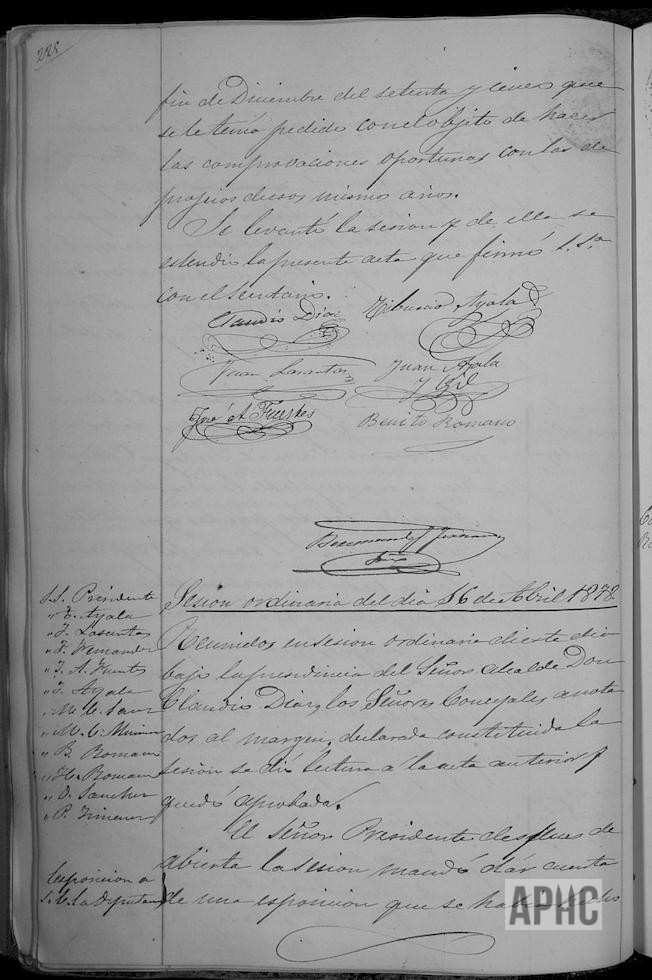 225
fin de Diciembre del setenta y cinco que
se le tenia pedido con el objeto de hacer
las comprovaciones oportunas con las de
propios de esos mismos años.
Se levantó la sesion y de ella se
estendió la presente acta que firmó S. Sª
con el Secretario.
Claudio Diaz
Tiburcio Ayala
Juan Lasantas
Juan Ayala
y Gil
José A. Fuertes
Benito Romano
Sesion ordinaria del dia 16 de Abril 1878.
S.S. Presidente
" T. Ayala
" J. Lasantas
" F. Fernandez
" J. A. Fuertes
" J. Ayala
" M. C. Sanz
" M. C.
" B. Romano
" H. Romano
" O. Sanchez
" P. Jimenez
Reunidos en sesion ordinaria de este dia
bajo la presidencia del Señor Alcalde Don
Claudio Diaz, los Señores Concejales anota
dos al margen, declarada constituida la
sesion se dió lectura a la acta anterior y
quedó aprobada.
El Señor Presidente despues de
abierta la sesion mandó dár cuenta
de una esposicion que se había hecho
Esposicion a
S. E. la Diputacion
APHC